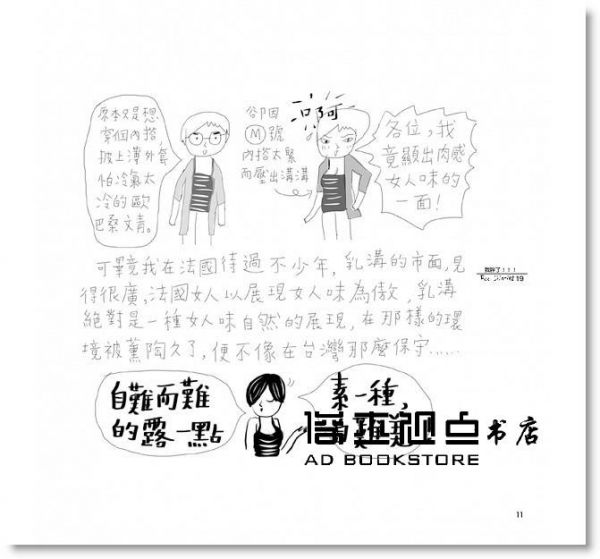 原本只是想
穿個內搭,
披上薄外套
怕冷氣太
冷的歐
巴桑文青。
卻因
M號
內搭太緊
而壓出溝溝
啊
各位,我
竟顯出肉感
女人味的
一面!
可畢竟我在法國待過不少年,乳溝的市面,見
得很廣,法國女人以展現女人味為傲,乳溝
絕對是一種女人味自然的展現,在那樣的環
境被薰陶久了,便不像在台灣那麼保守……
19
自難而難
的露一點
素一種,
书店
AD BOOKSTORE
11